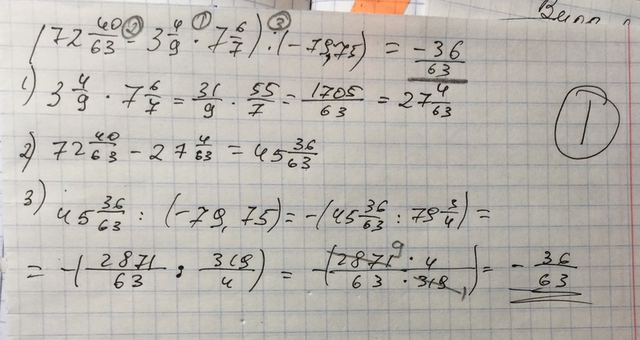 Вип
(72 40/63 - 3 4/9 · 7 6/7) : (-79,75) = -36/63
② ① ③
1) 3 4/9 · 7 6/7 = 31/9 · 55/7 = 1705/63 = 27 4/63
2) 72 40/63 - 27 4/63 = 45 36/63
I
3) 45 36/63 : (-79,75) = -(45 36/63 : 79 3/4) =
= -(2871/63 : 319/4) = -(2871 · 4/63 · 319) = -36/63
9
1